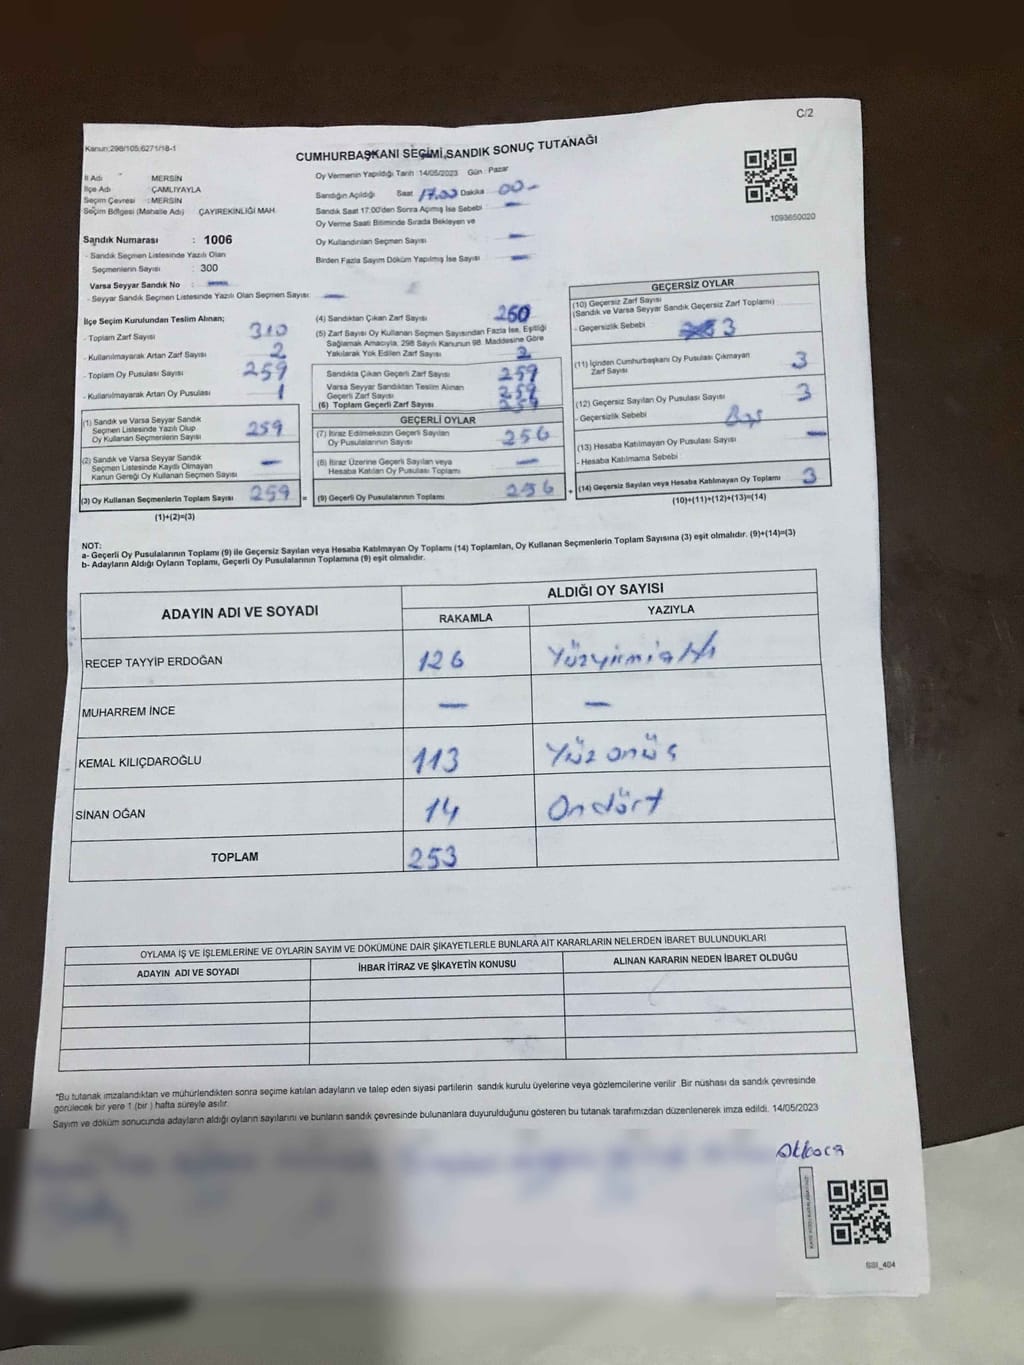 C/2
Kanun:298/105;6271/18-1
CUMHURBAŞKANI SEÇİMİ SANDIK SONUÇ TUTANAĞI
İl Adı : MERSİN
İlçe Adı : ÇAMLIYAYLA
Seçim Çevresi : MERSİN
Seçim Bölgesi (Mahalle Adı) ÇAYIREKİNLİĞİ MAH.
Oy Vermenin Yapıldığı Tarih :14/05/2023 Gün : Pazar
Sandığın Açıldığı Saat 17.00 Dakika 00-
Sandık Saat 17:00'den Sonra Açımış İse Sebebi —
Oy Verme Saati Bitiminde Sırada Bekleyen ve
Oy Kullandırılan Seçmen Sayısı —
Birden Fazla Sayım Döküm Yapılmış İse Sayısı —
1093650020
Sandık Numarası : 1006
- Sandık Seçmen Listesinde Yazılı Olan
Seçmenlerin Sayısı : 300
Varsa Seyyar Sandık No : —
- Seyyar Sandık Seçmen Listesinde Yazılı Olan Seçmen Sayısı: —
İlçe Seçim Kurulundan Teslim Alınan;
- Toplam Zarf Sayısı 310
- Kullanılmayarak Artan Zarf Sayısı 2
- Toplam Oy Pusulası Sayısı 259
- Kullanılmayarak Artan Oy Pusulası 1
(1) Sandık ve Varsa Seyyar Sandık
Seçmen Listesinde Yazılı Olup
Oy Kullanan Seçmenlerin Sayısı 259
(2) Sandık ve Varsa Seyyar Sandık
Seçmen Listesinde Kayıtlı Olmayan
Kanun Gereği Oy Kullanan Seçmen Sayısı —
(3) Oy Kullanan Seçmenlerin Toplam Sayısı 259 =
(1)+(2)=(3)
(4) Sandıktan Çıkan Zarf Sayısı 260
(5) Zarf Sayısı Oy Kullanan Seçmen Sayısından Fazla İse, Eşitliği
Sağlamak Amacıyla, 298 Sayılı Kanunun 98. Maddesine Göre
Yakılarak Yok Edilen Zarf Sayısı 2
Sandıkta Çıkan Geçerli Zarf Sayısı 259
Varsa Seyyar Sandıktan Teslim Alınan
Geçerli Zarf Sayısı 259
(6) Toplam Geçerli Zarf Sayısı 259
GEÇERLİ OYLAR
(7) İtiraz Edilmeksizin Geçerli Sayılan
Oy Pusulalarının Sayısı 256
(8) İtiraz Üzerine Geçerli Sayılan veya
Hesaba Katılan Oy Pusulası Toplamı —
(9) Geçerli Oy Pusulalarının Toplamı 256 +
GEÇERSİZ OYLAR
(10) Geçersiz Zarf Sayısı
(Sandık ve Varsa Seyyar Sandık Geçersiz Zarf Toplamı)
- Geçersizlik Sebebi 3
(11) İçinden Cumhurbaşkanı Oy Pusulası Çıkmayan
Zarf Sayısı 3
(12) Geçersiz Sayılan Oy Pusulası Sayısı 3
- Geçersizlik Sebebi Boş
(13) Hesaba Katılmayan Oy Pusulası Sayısı —
- Hesaba Katılmama Sebebi
(14) Geçersiz Sayılan veya Hesaba Katılmayan Oy Toplamı 3
(10)+(11)+(12)+(13)=(14)
NOT:
a- Geçerli Oy Pusulalarının Toplamı (9) ile Geçersiz Sayılan veya Hesaba Katılmayan Oy Toplamı (14) Toplamları, Oy Kullanan Seçmenlerin Toplam Sayısına (3) eşit olmalıdır. (9)+(14)=(3)
b- Adayların Aldığı Oyların Toplamı, Geçerli Oy Pusulalarının Toplamına (9) eşit olmalıdır.
ADAYIN ADI VE SOYADI
ALDIĞI OY SAYISI
RAKAMLA YAZIYLA
RECEP TAYYİP ERDOĞAN 126 Yüzyirmialtı
MUHARREM İNCE — —
KEMAL KILIÇDAROĞLU 113 Yüz onüç
SİNAN OĞAN 14 Ondört
TOPLAM 253
OYLAMA İŞ VE İŞLEMLERİNE VE OYLARIN SAYIM VE DÖKÜMÜNE DAİR ŞİKAYETLERLE BUNLARA AİT KARARLARIN NELERDEN İBARET BULUNDUKLARI
ADAYIN ADI VE SOYADI İHBAR İTİRAZ VE ŞİKAYETİN KONUSU ALINAN KARARIN NEDEN İBARET OLDUĞU
*Bu tutanak imzalandıktan ve mühürlendikten sonra seçime katılan adayların ve talep eden siyasi partilerin sandık kurulu üyelerine veya gözlemcilerine verilir. Bir nüshası da sandık çevresinde
görülecek bir yere 1 (bir ) hafta süreyle asılır.
Sayım ve döküm sonucunda adayların aldığı oyların sayılarını ve bunların sandık çevresinde bulunanlara duyurulduğunu gösteren bu tutanak tarafımızdan düzenlenerek imza edildi. 14/05/2023